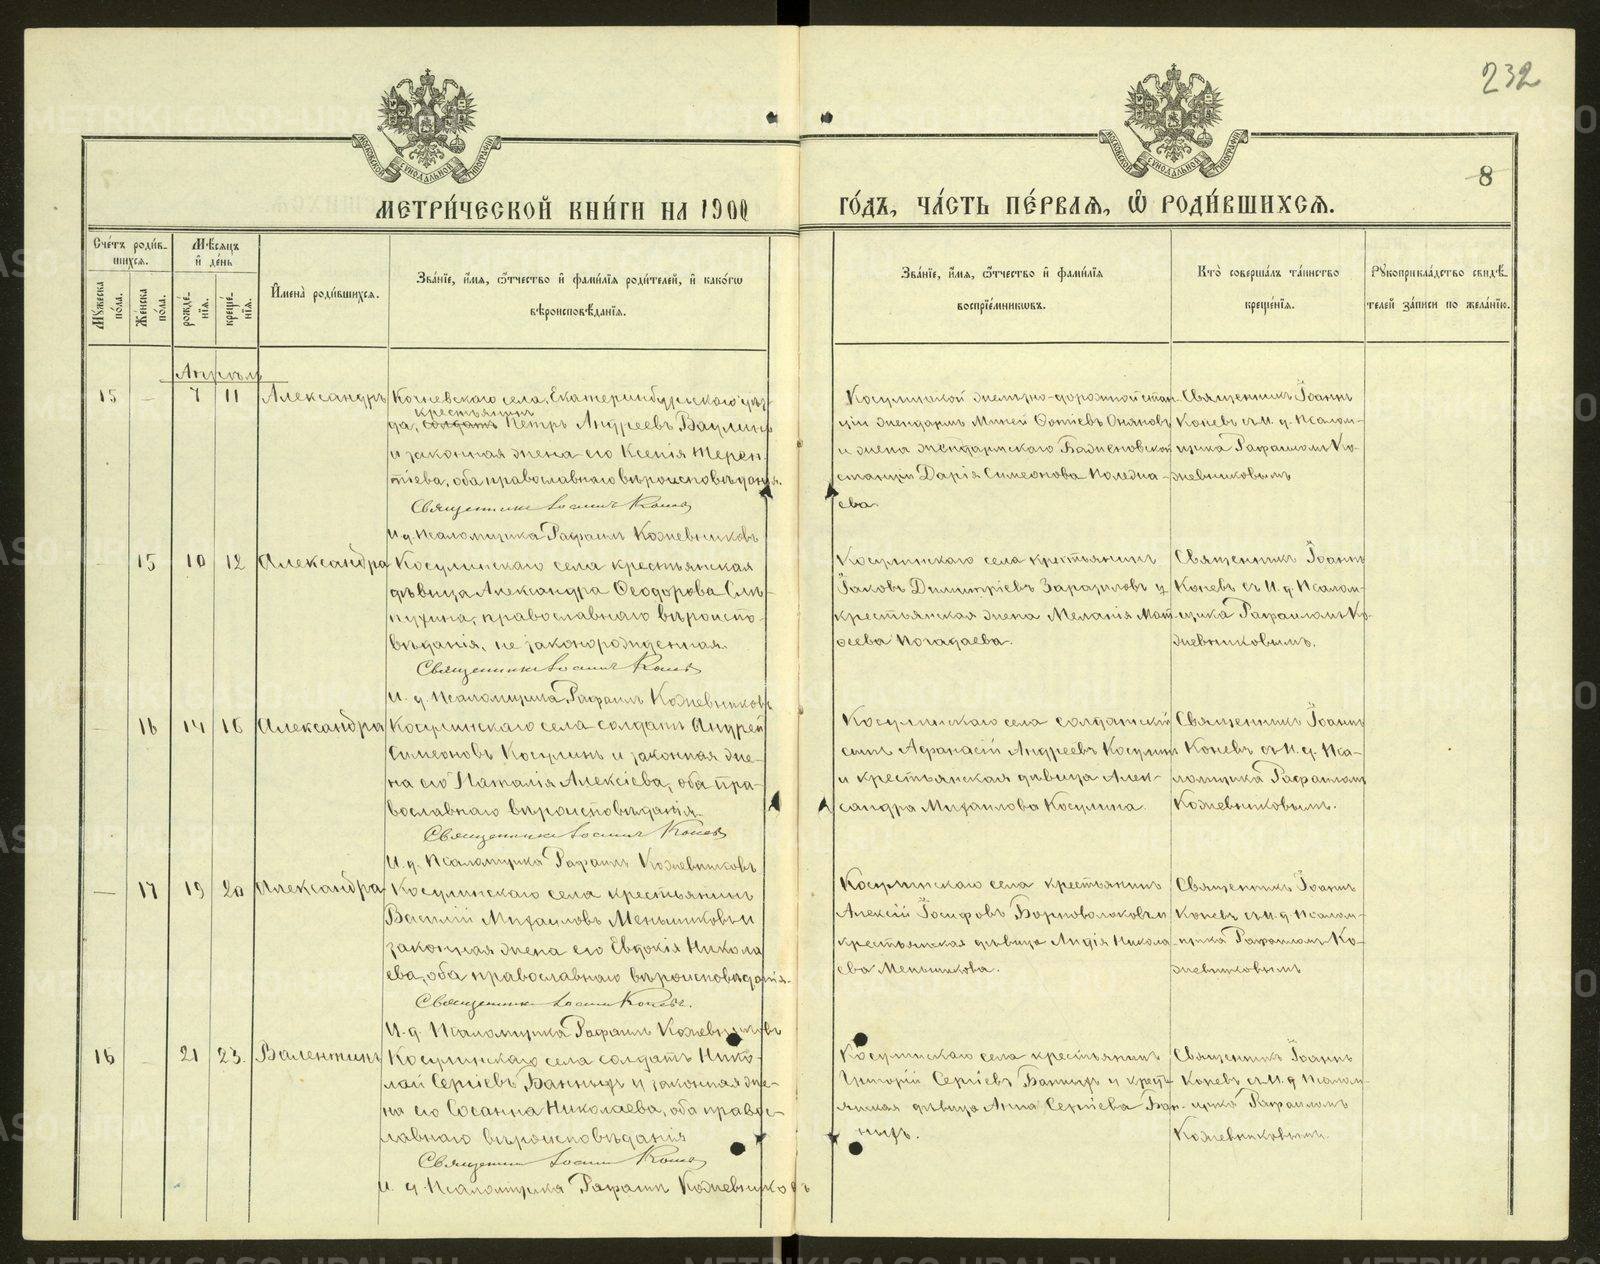 232
8
МЕТРИ́ЧЕСКОЙ КНИ́ГИ НА 1900
ГО́ДЪ, ЧА́СТЬ ПЕ́РВАЯ, Ѡ҆ РОДИ́ВШИХСЯ.
Сче́тъ роди́в-
шихся.
Мѣ́сяцъ
и҆ де́нь
Му́жеска
по́ла.
Же́нска
по́ла.
рожде́-
нїя.
креще́-
нїя.
И҆мена̀ роди́вшихся.
Зва́нїе, и҆́мя, ѻ҆́тчество и҆ фами́лїя роди́телей, и҆ како́гѡ
вѣроисповѣ́данїя.
Зва́нїе, и҆́мя, ѻ҆́тчество и҆ фами́лїя
воспрїе́мниковъ.
Кто̀ соверша́лъ та́инство
креще́нїя.
Рꙋкоприкла́дство свидѣ́-
телей за́писи по жела́нїю.
Апрѣль
15 — 7 11 Александръ
Кочневскаго села, Екатеринбургскаго уѣз-
крестьянинъ
да, солдатъ Петръ Андреевъ Ваулинъ
и законная жена его Ксенія Терен-
тіева, оба православнаго вѣроисповѣданія.
Священникъ Іоаннъ Коневъ
И. д. Псаломщика Рафаилъ Кожевниковъ
Косулинской желѣзно-дорожной стан-
ціи жандармъ Миней
и жена жандармскаго Баженовской
станціи Дарія Симеонова
ева.
Священникъ Іоаннъ
Коневъ съ И. д. Псалом-
щика Рафаиломъ Ко-
жевниковымъ
— 15 10 12 Александра
Косулинскаго села крестьянская
дѣвица Александра Ѳеодорова Слѣ-
пухина, православнаго вѣроиспо-
вѣданія, не законорожденная.
Священникъ Іоаннъ Коневъ
И. д. Псаломщика Рафаилъ Кожевниковъ
Косулинскаго села крестьянинъ
Іаковъ Димитріевъ и
крестьянская жена Меланія Мат-
ѳеева Погадаева.
Священникъ Іоаннъ
Коневъ съ И. д. Псалом-
щика Рафаиломъ Ко-
жевниковымъ.
— 16 14 16 Александра
Косулинскаго села солдатъ Андрей
Симеоновъ Косулинъ и законная же-
на его Наталія Алексіева, оба пра-
вославнаго вѣроисповѣданія.
Священникъ Іоаннъ Коневъ
И. д. Псаломщика Рафаилъ Кожевниковъ
Косулинскаго села солдатскій
сынъ Афанасій Андреевъ Косулинъ
и крестьянская дѣвица Алек-
сандра Михаилова Косулина.
Священникъ Іоаннъ
Коневъ съ И. д. Пса-
ломщика Рафаиломъ
Кожевниковымъ.
— 17 19 20 Александра
Косулинскаго села крестьянинъ
Василій Михаиловъ Меньшиковъ и
законная жена его Евдокія Никола-
ева, оба православнаго вѣроисповѣданія.
Священникъ Іоаннъ Коневъ.
И. д. Псаломщика Рафаилъ Кожевниковъ
Косулинскаго села крестьянинъ
Алексій Іосифовъ Борноволоковъ и
крестьянская дѣвица Лидія Никола-
ева Меньшикова.
Священникъ Іоаннъ
Коневъ съ И. д. Псалом-
щика Рафаиломъ Ко-
жевниковымъ
16 — 21 23. Валентинъ
Косулинскаго села солдатъ Нико-
лай Сергіевъ Банныхъ и законная же-
на его Сосанна Николаева, оба правос-
лавнаго вѣроисповѣданія
Священникъ Іоаннъ Коневъ
И. д. Псаломщика Рафаилъ Кожевниковъ
Косулинскаго села крестьянинъ
Григорій Сергіевъ Банныхъ и крестъ-
янская дѣвица Анна Сергіева Бан-
ныхъ.
Священникъ Іоаннъ
Коневъ съ И. д. Псалом-
щика Рафаиломъ
Кожевниковымъ.
METRIKI.GASO-URAL.RU